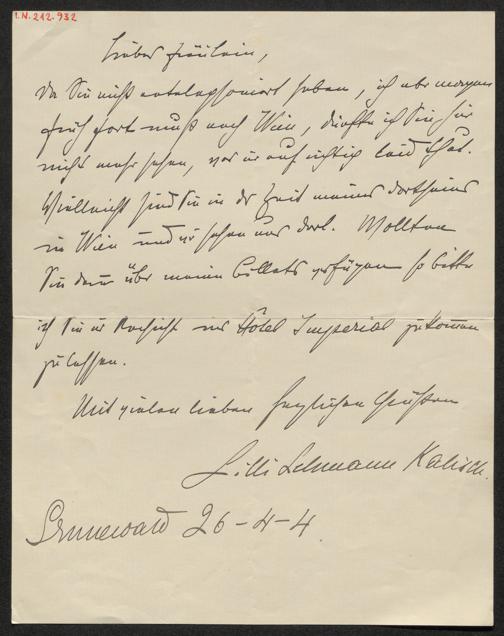 I.N. 212.932
Liebes Fräulein,
Da Sie nicht antelephoniert haben, ich aber morgen
früh fort muß nach Wien, dürfte ich Sie hier
nicht mehr sehen, was mir aufrichtig leid thut.
Vielleicht sind Sie in der Zeit meines Dortseins
in Wien und wir sehen uns dort. Wollten
Sie dann über meine Billets verfügen so bitte
ich Sie mir Nachricht ins Hôtel Imperial zukommen
zu lassen.
Mit vielen lieben herzlichen Grüßen
Lilli Lehmann Kalisch.
Grunewald 26-4-4.